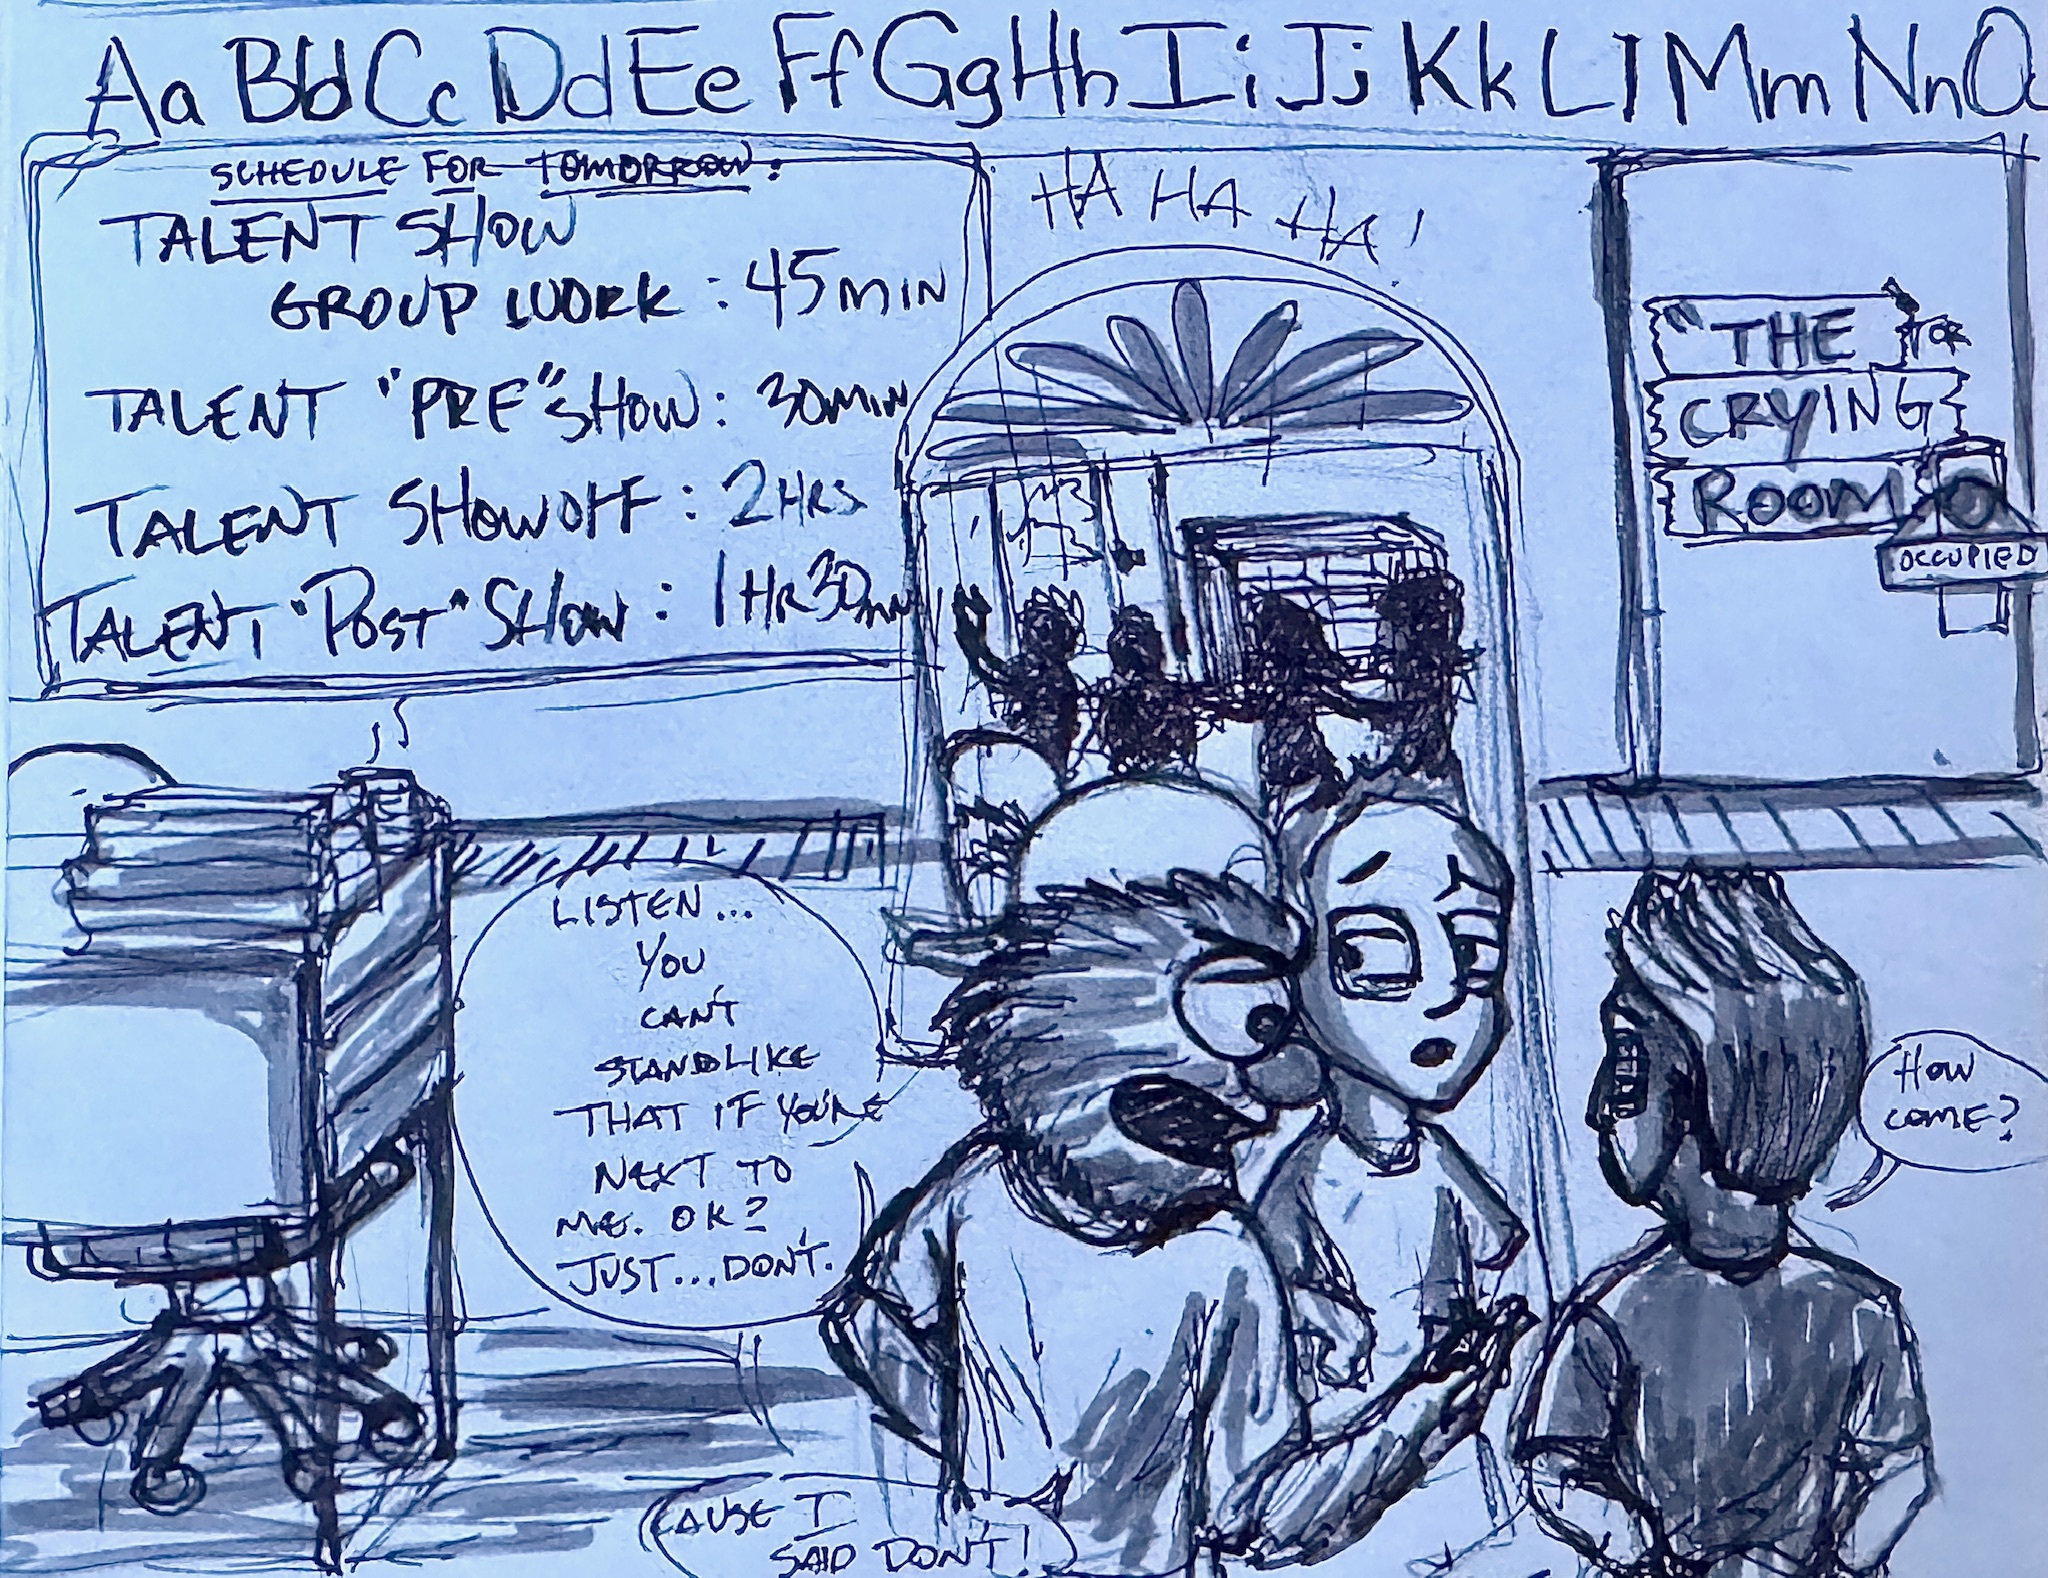 Aa Bb Cc Dd Ee Ff Gg Hh Ii Jj Kk Ll Mm Nn O
SCHEDULE FOR TOMORROW:
TALENT SHOW
GROUP WORK : 45 MIN
TALENT "PRE" SHOW: 30 MIN
TALENT SHOWOFF : 2 HRS
TALENT "POST" SHOW : 1 HR 30 MIN
HA HA HA!
"THE
CRYING
ROOM
OCCUPIED
LISTEN...
YOU
CAN'T
STAND LIKE
THAT IF YOU'RE
NEXT TO
ME. OK?
JUST... DON'T.
HOW
COME?
CAUSE I
SAID DON'T!